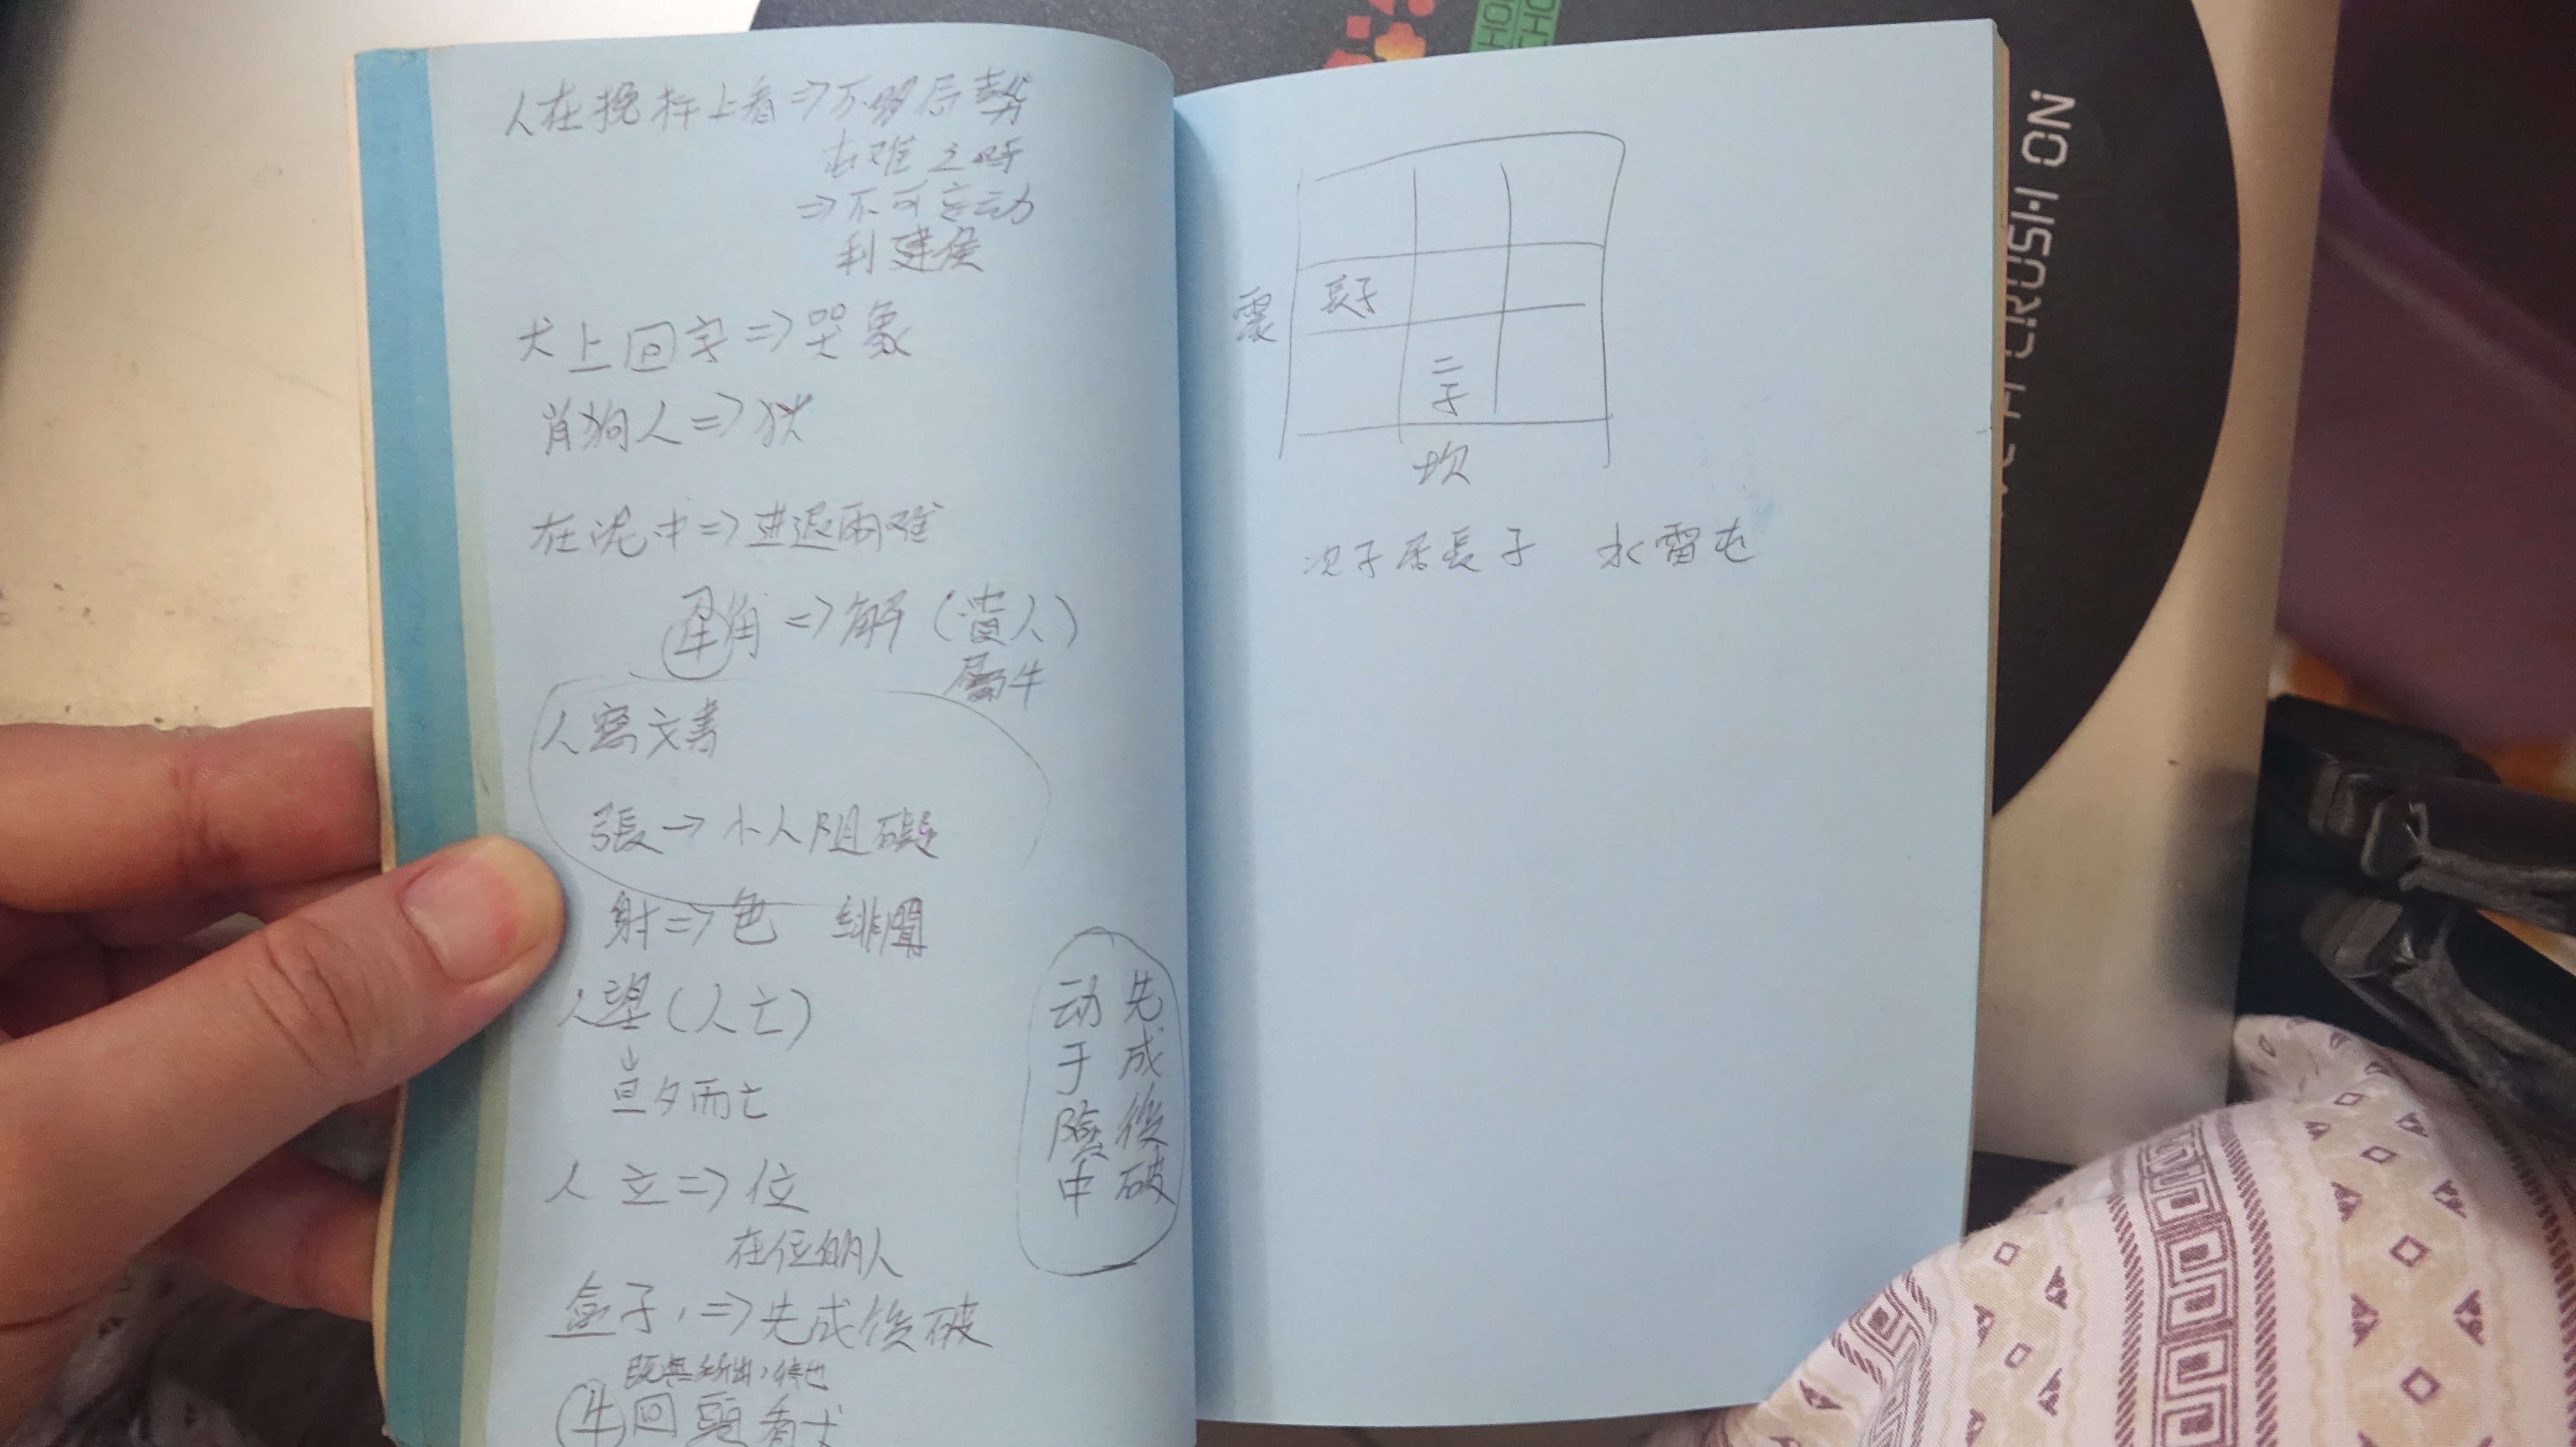 人在挽杆上看⇒不明局勢
屯难之時
⇒不可妄动
利建侯
犬上回字⇒哭象
肖狗人⇒狄
在泥中⇒进退兩难
角⇒解(貴人)
屬牛
人寫文書
張→小人阻礙
射⇒色 緋聞
人望(人亡)
↓
旦夕而亡
人立⇒位
在位的人
盒子,⇒先成後破
牛回頭看犬
先成後破
动于險中
震
長子
二子
坎
次子居長子 水雷屯
NO HSOROSH